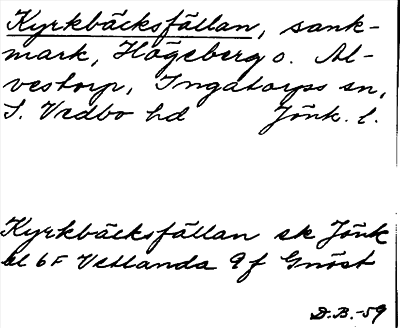 Kyrkbäcksfällan, sank-
mark, Högeberg o. Al-
vestorp, Ingatorps sn,
S. Vedbo hd Jönk. l.
Kyrkbäcksfällan sk Jönk
bl 6F Vetlanda 9f Gnöst
D.B.-59